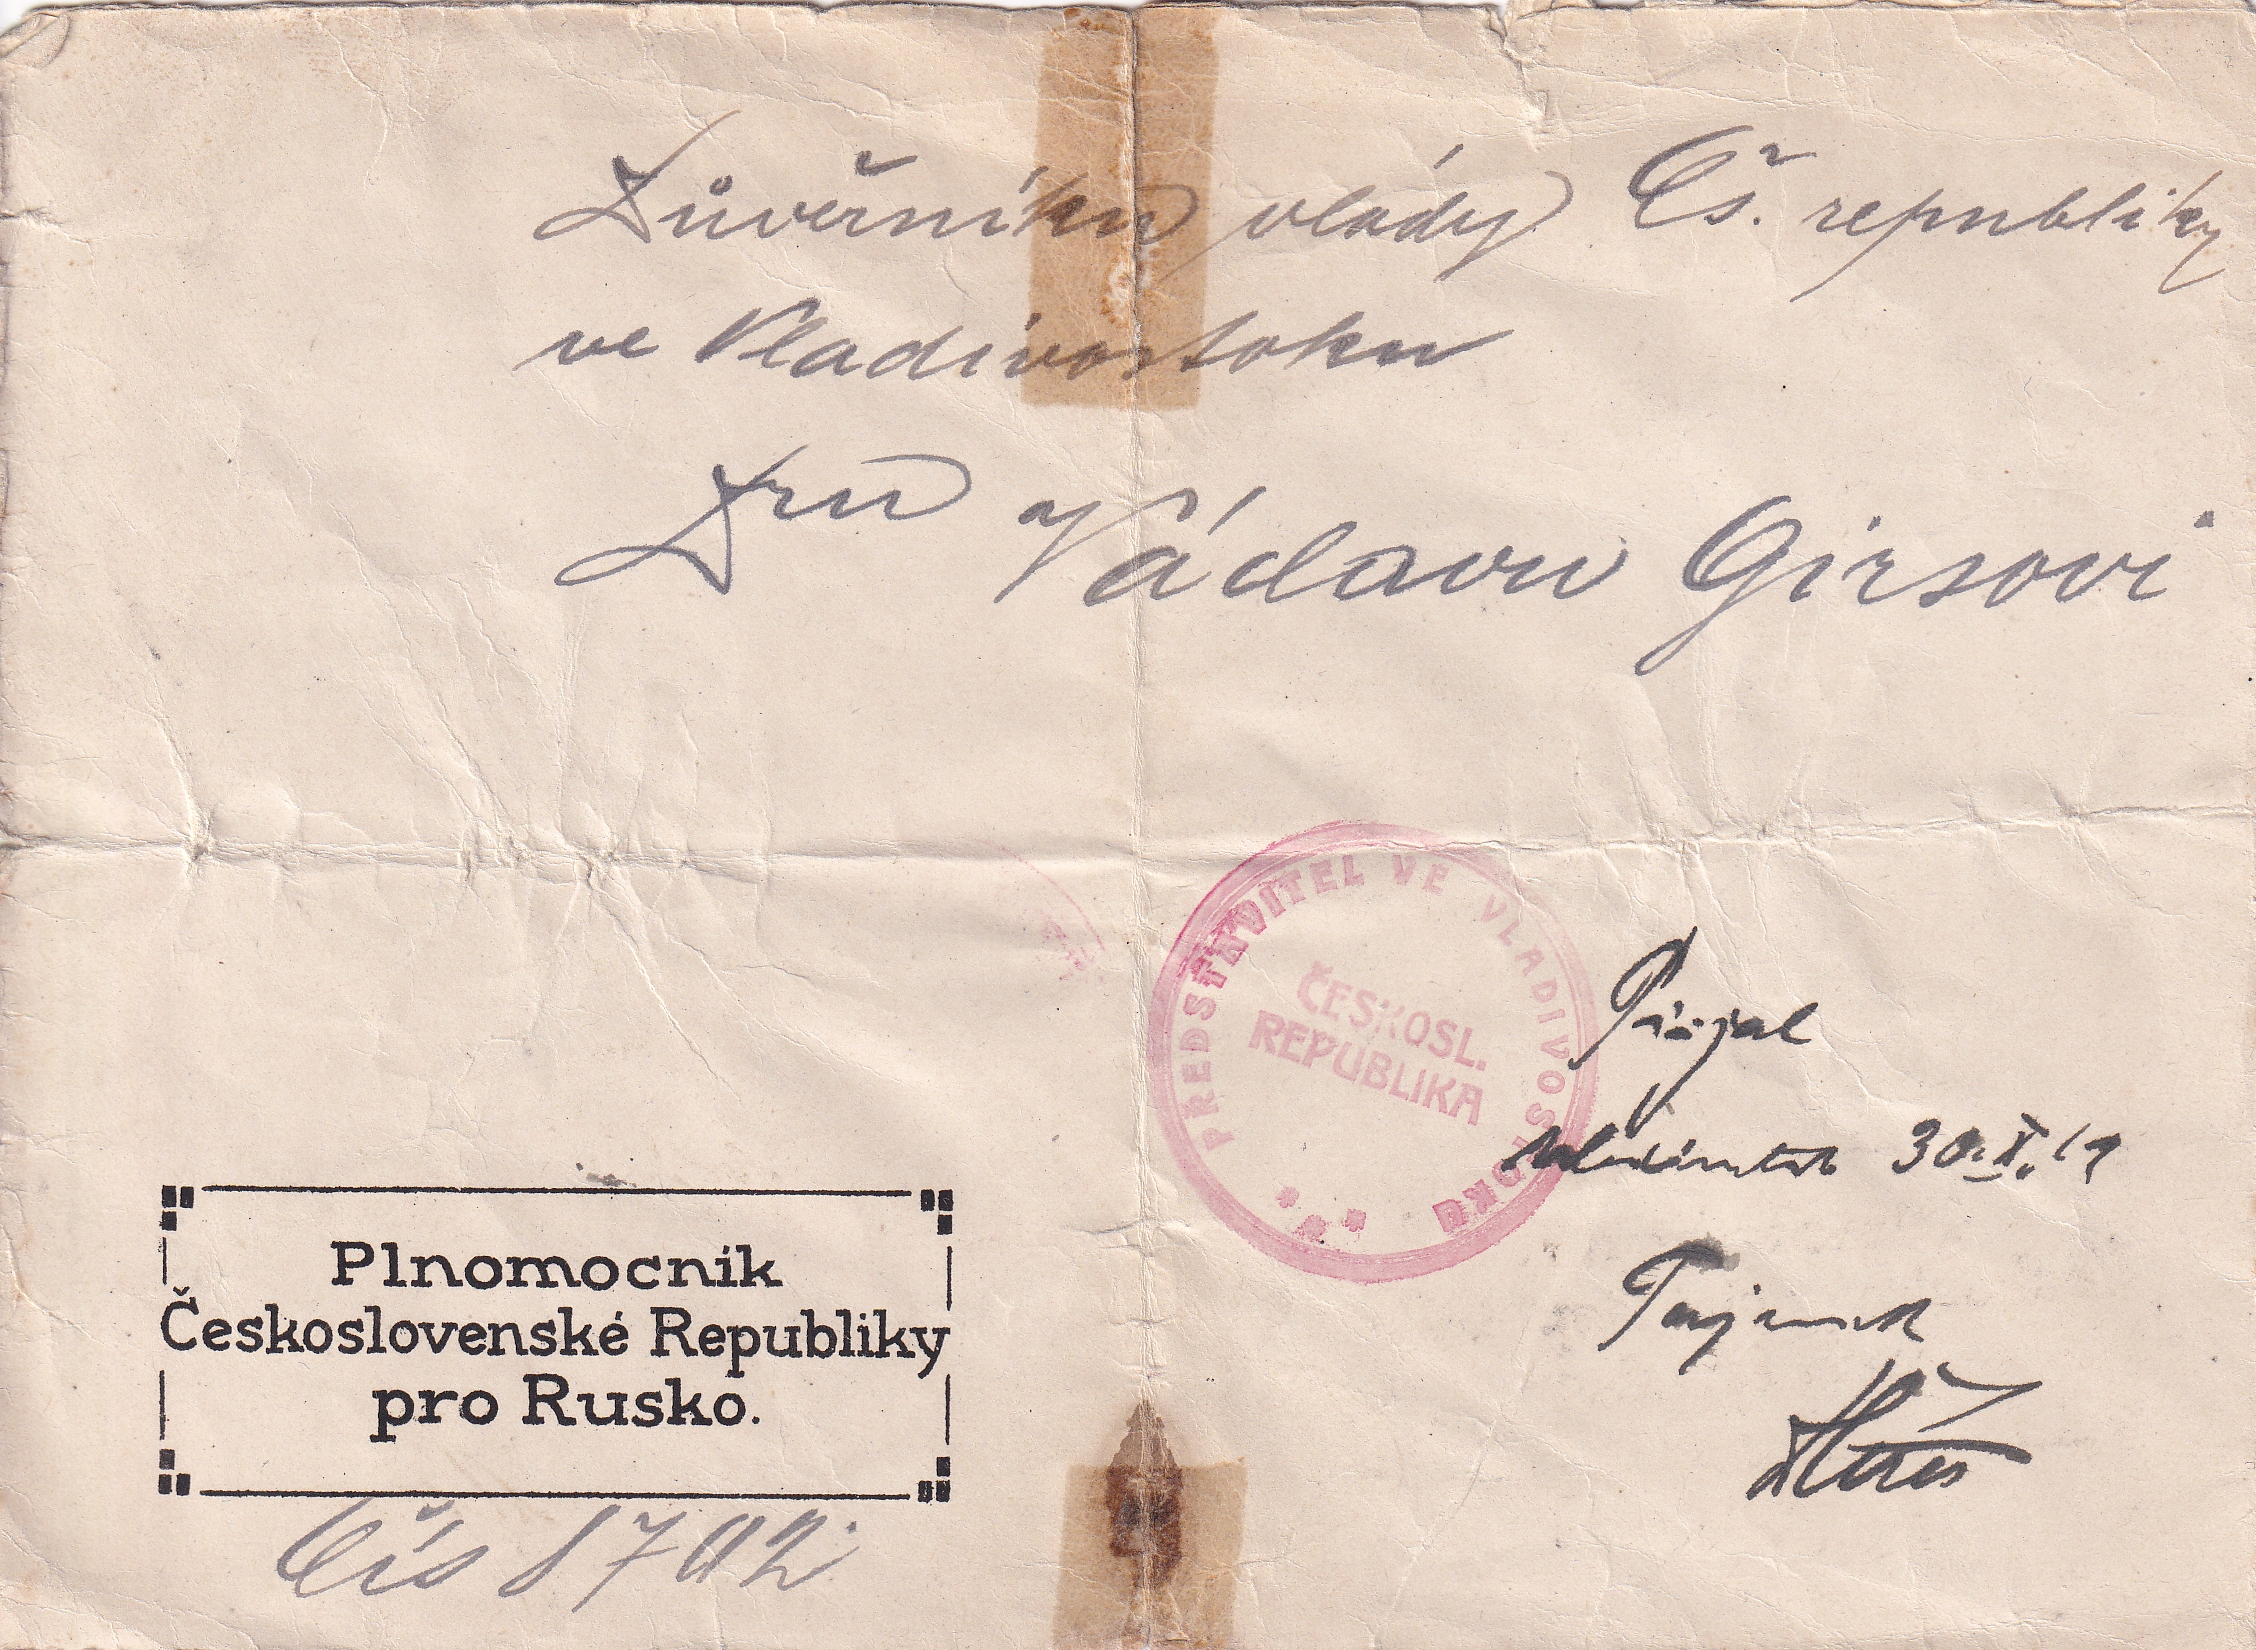 Důvěrníku vlády Čs. republiky
ve Vladivostoku
Dru Václavu Girsovi
PŘEDSTAVITEL VE VLADIVOSTOKU
ČESKOSL.
REPUBLIKA
Přijal
Vladivostok 30.X.19
Tajemník
Plnomocník
Československé Republiky
pro Rusko.
Čís 1702